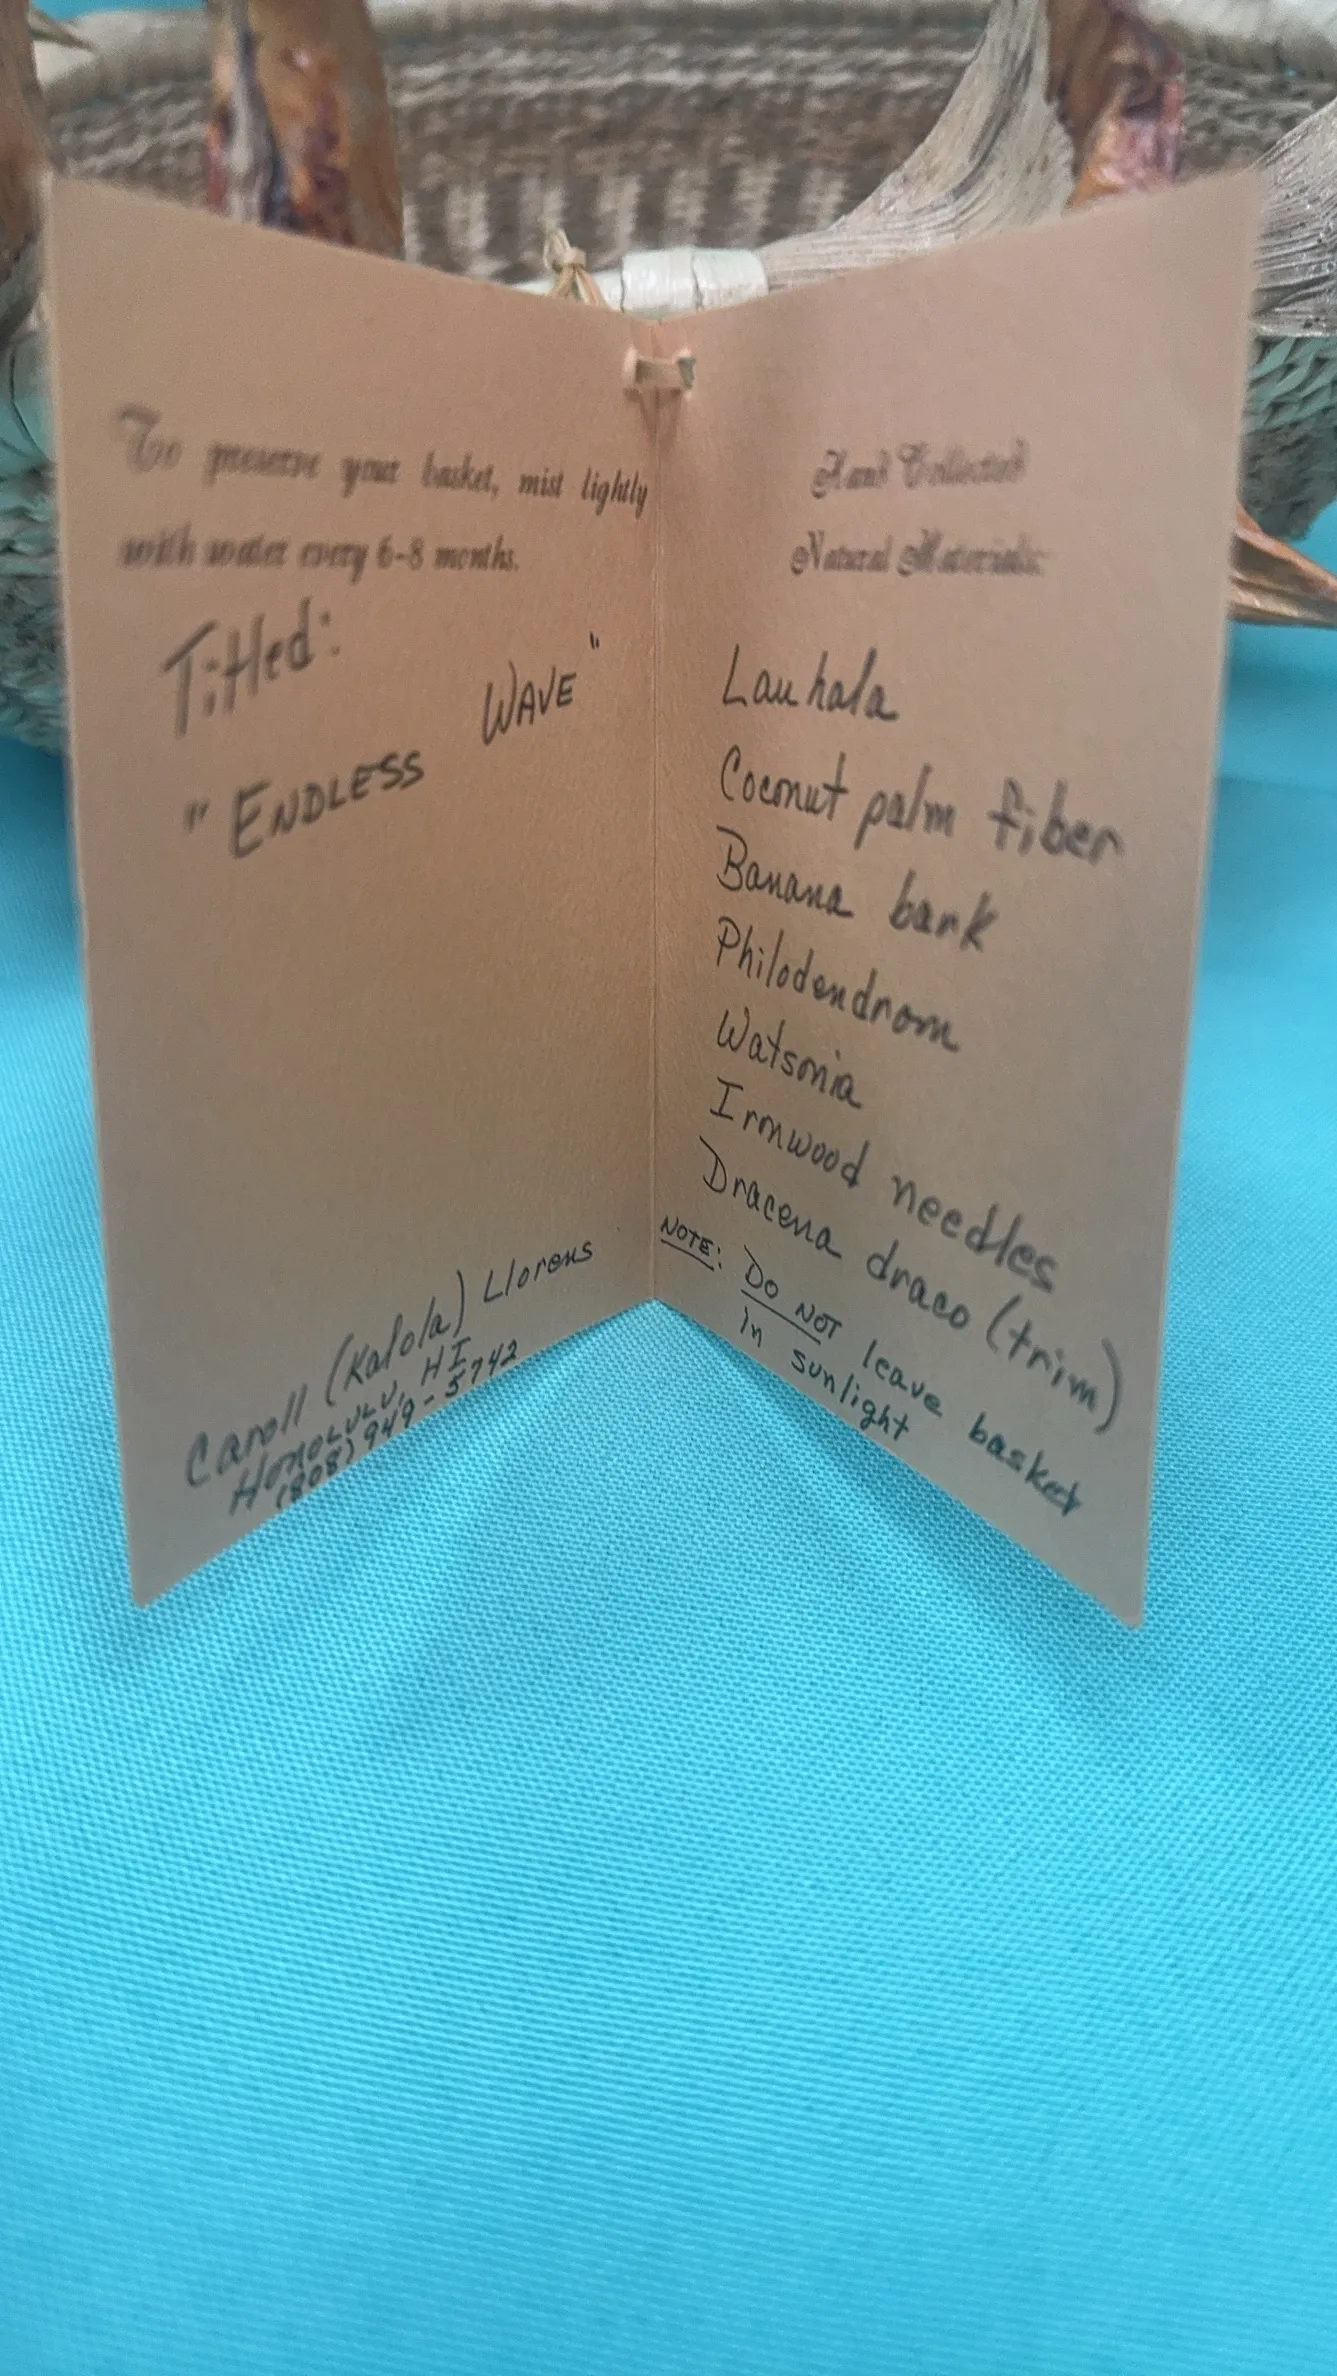 To preserve your basket, mist lightly
with water every 6-8 months.
Titled:
" ENDLESS WAVE "
Caroll (Kalola) Llorens
HONOLULU, HI
(808) 949-5742
Hand Collected
Natural Materials:
Lauhala
Coconut palm fiber
Banana bark
Philodendrom
Watsonia
Ironwood needles
Dracena draco (trim)
NOTE: DO NOT leave basket
in sunlight